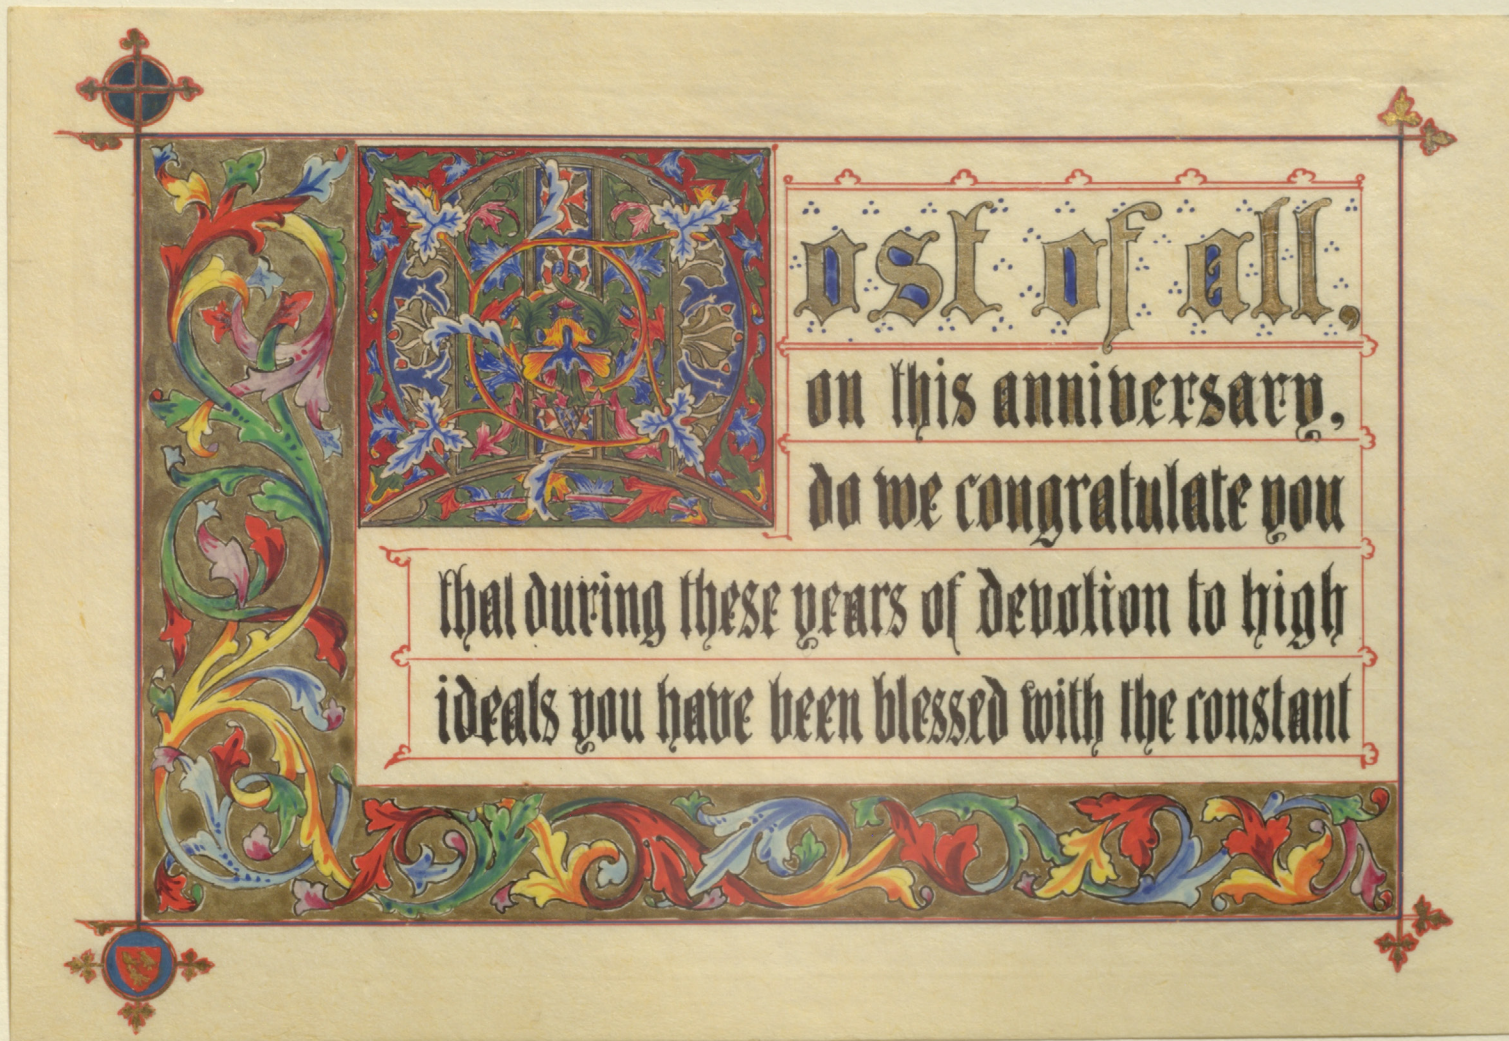 Most of all,
on this anniversary,
do we congratulate you
that during these years of devotion to high
ideals you have been blessed with the constant